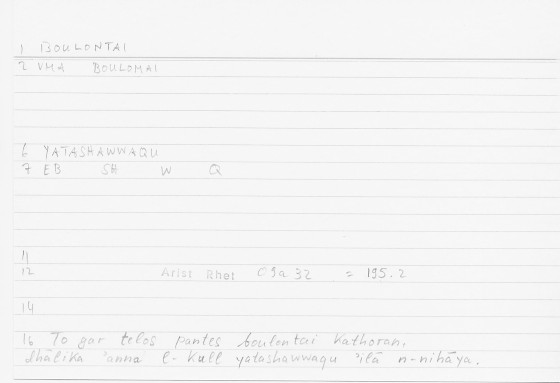 1 BOULONTAI
2 VMA BOULOMAI
6 YATASHAWWAQU
7 EB SH W Q
11
12 Arist Rhet 09a 32 = 195.2
14
16 To gar telos pantes boulontai kathoran.
dhālika 'anna l-kull yatashawwaqu 'ilā n-nihāya.